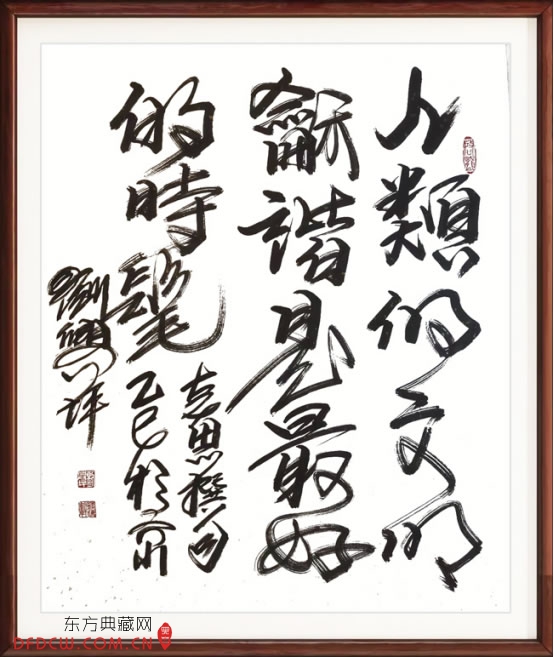 人類的文明
龢諧是最好
的時髦
志思撰句
乙巳於京
劉
东方典藏网
DFDCW.COM.CN